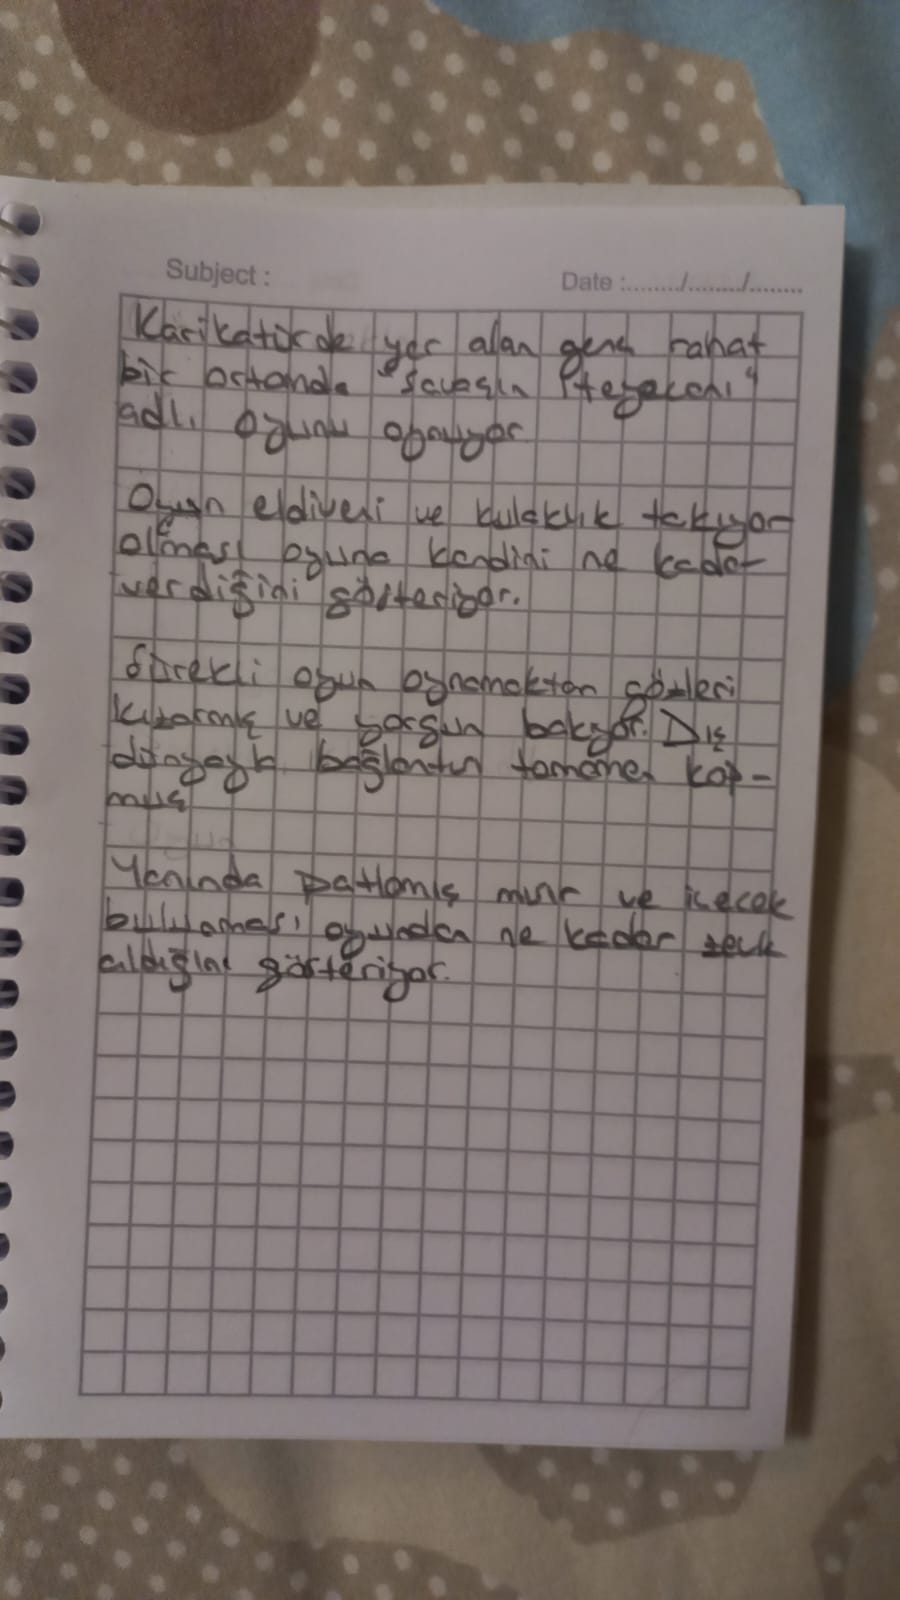 Subject :
Date :......../......../........
Karikatürde yer alan genç rahat
bir ortamda "Savaşın
adlı oyunu oynuyor
Oyun eldiveni ve kulaklık takıyor
olması oyuna kendini ne kadar
verdiğini gösteriyor.
Sürekli oyun oynamaktan gözleri
kızarmış ve yorgun bakıyor. Dış
dünyayla bağlantısı tamamen kop-
muş
Yanında patlamış mısır ve içecek
bulunması oyundan ne kadar zevk
aldığını gösteriyor.